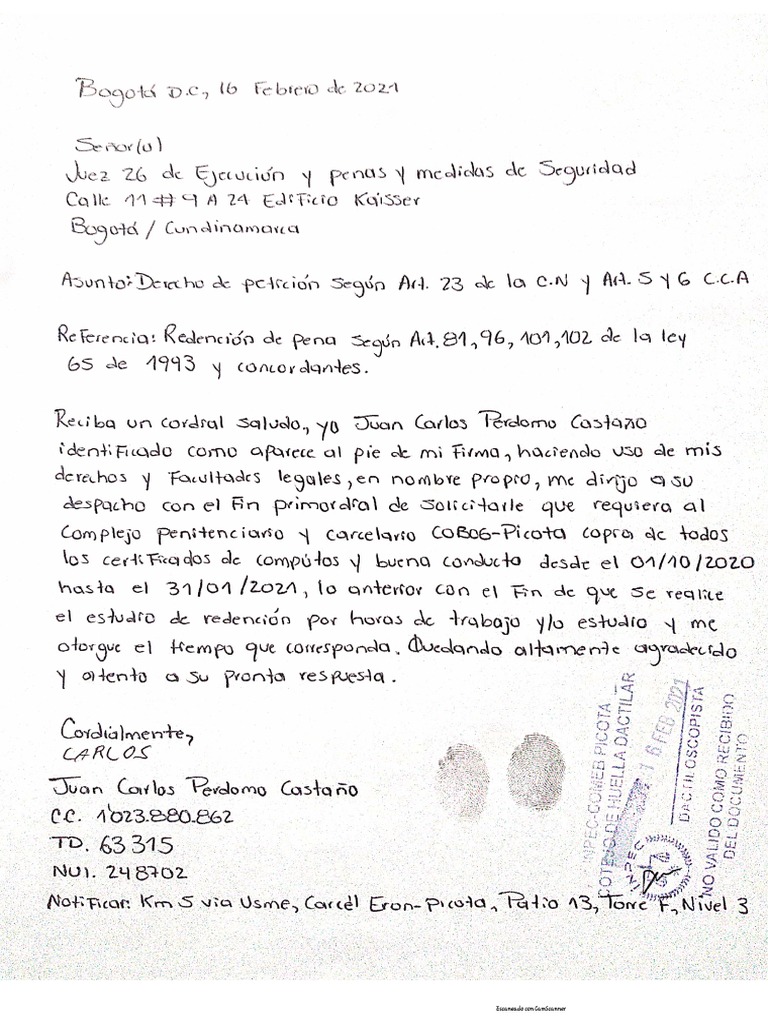 Bogotá D.C., 16 Febrero de 2021
Señor(a)
Juez 26 de Ejecución y penas y medidas de Seguridad
Calle 11 # 9 A 24 Edificio Kaisser
Bogotá / Cundinamarca
Asunto: Derecho de petición según Art. 23 de la C.N y Art. 5 y 6 C.C.A
Referencia: Redención de pena según Art. 81, 96, 101, 102 de la ley
65 de 1993 y concordantes.
Reciba un cordial saludo, yo Juan Carlos Perdomo Castaño
identificado como aparece al pie de mi firma, haciendo uso de mis
derechos y Facultades legales, en nombre propio, me dirijo a su
despacho con el Fin primordial de solicitarle que requiera al
Complejo penitenciario y carcelario COBOG-Picota copia de todos
los certificados de compútos y buena conducto desde el 01/10/2020
hasta el 31/01/2021, lo anterior con el Fin de que se realice
el estudio de redención por horas de trabajo y/o estudio y me
otorgue el tiempo que corresponda. Quedando altamente agradecido
y atento a su pronta respuesta.
Cordialmente,
CARLOS
Juan Carlos Perdomo Castaño
CC. 1'023.880.862
TD. 63315
NUI. 248702
Notificar: Km 5 via Usme, Carcel Eron-Picota, Patio 13, Torre F, Nivel 3
INPEC-COMEB PICOTA
COTEJO DE HUELLA DACTILAR
16 FEB 2021
DACTILOSCOPISTA
NO VALIDO COMO RECIBIDO
DEL DOCUMENTO
INPEC
Escaneado con CamScanner